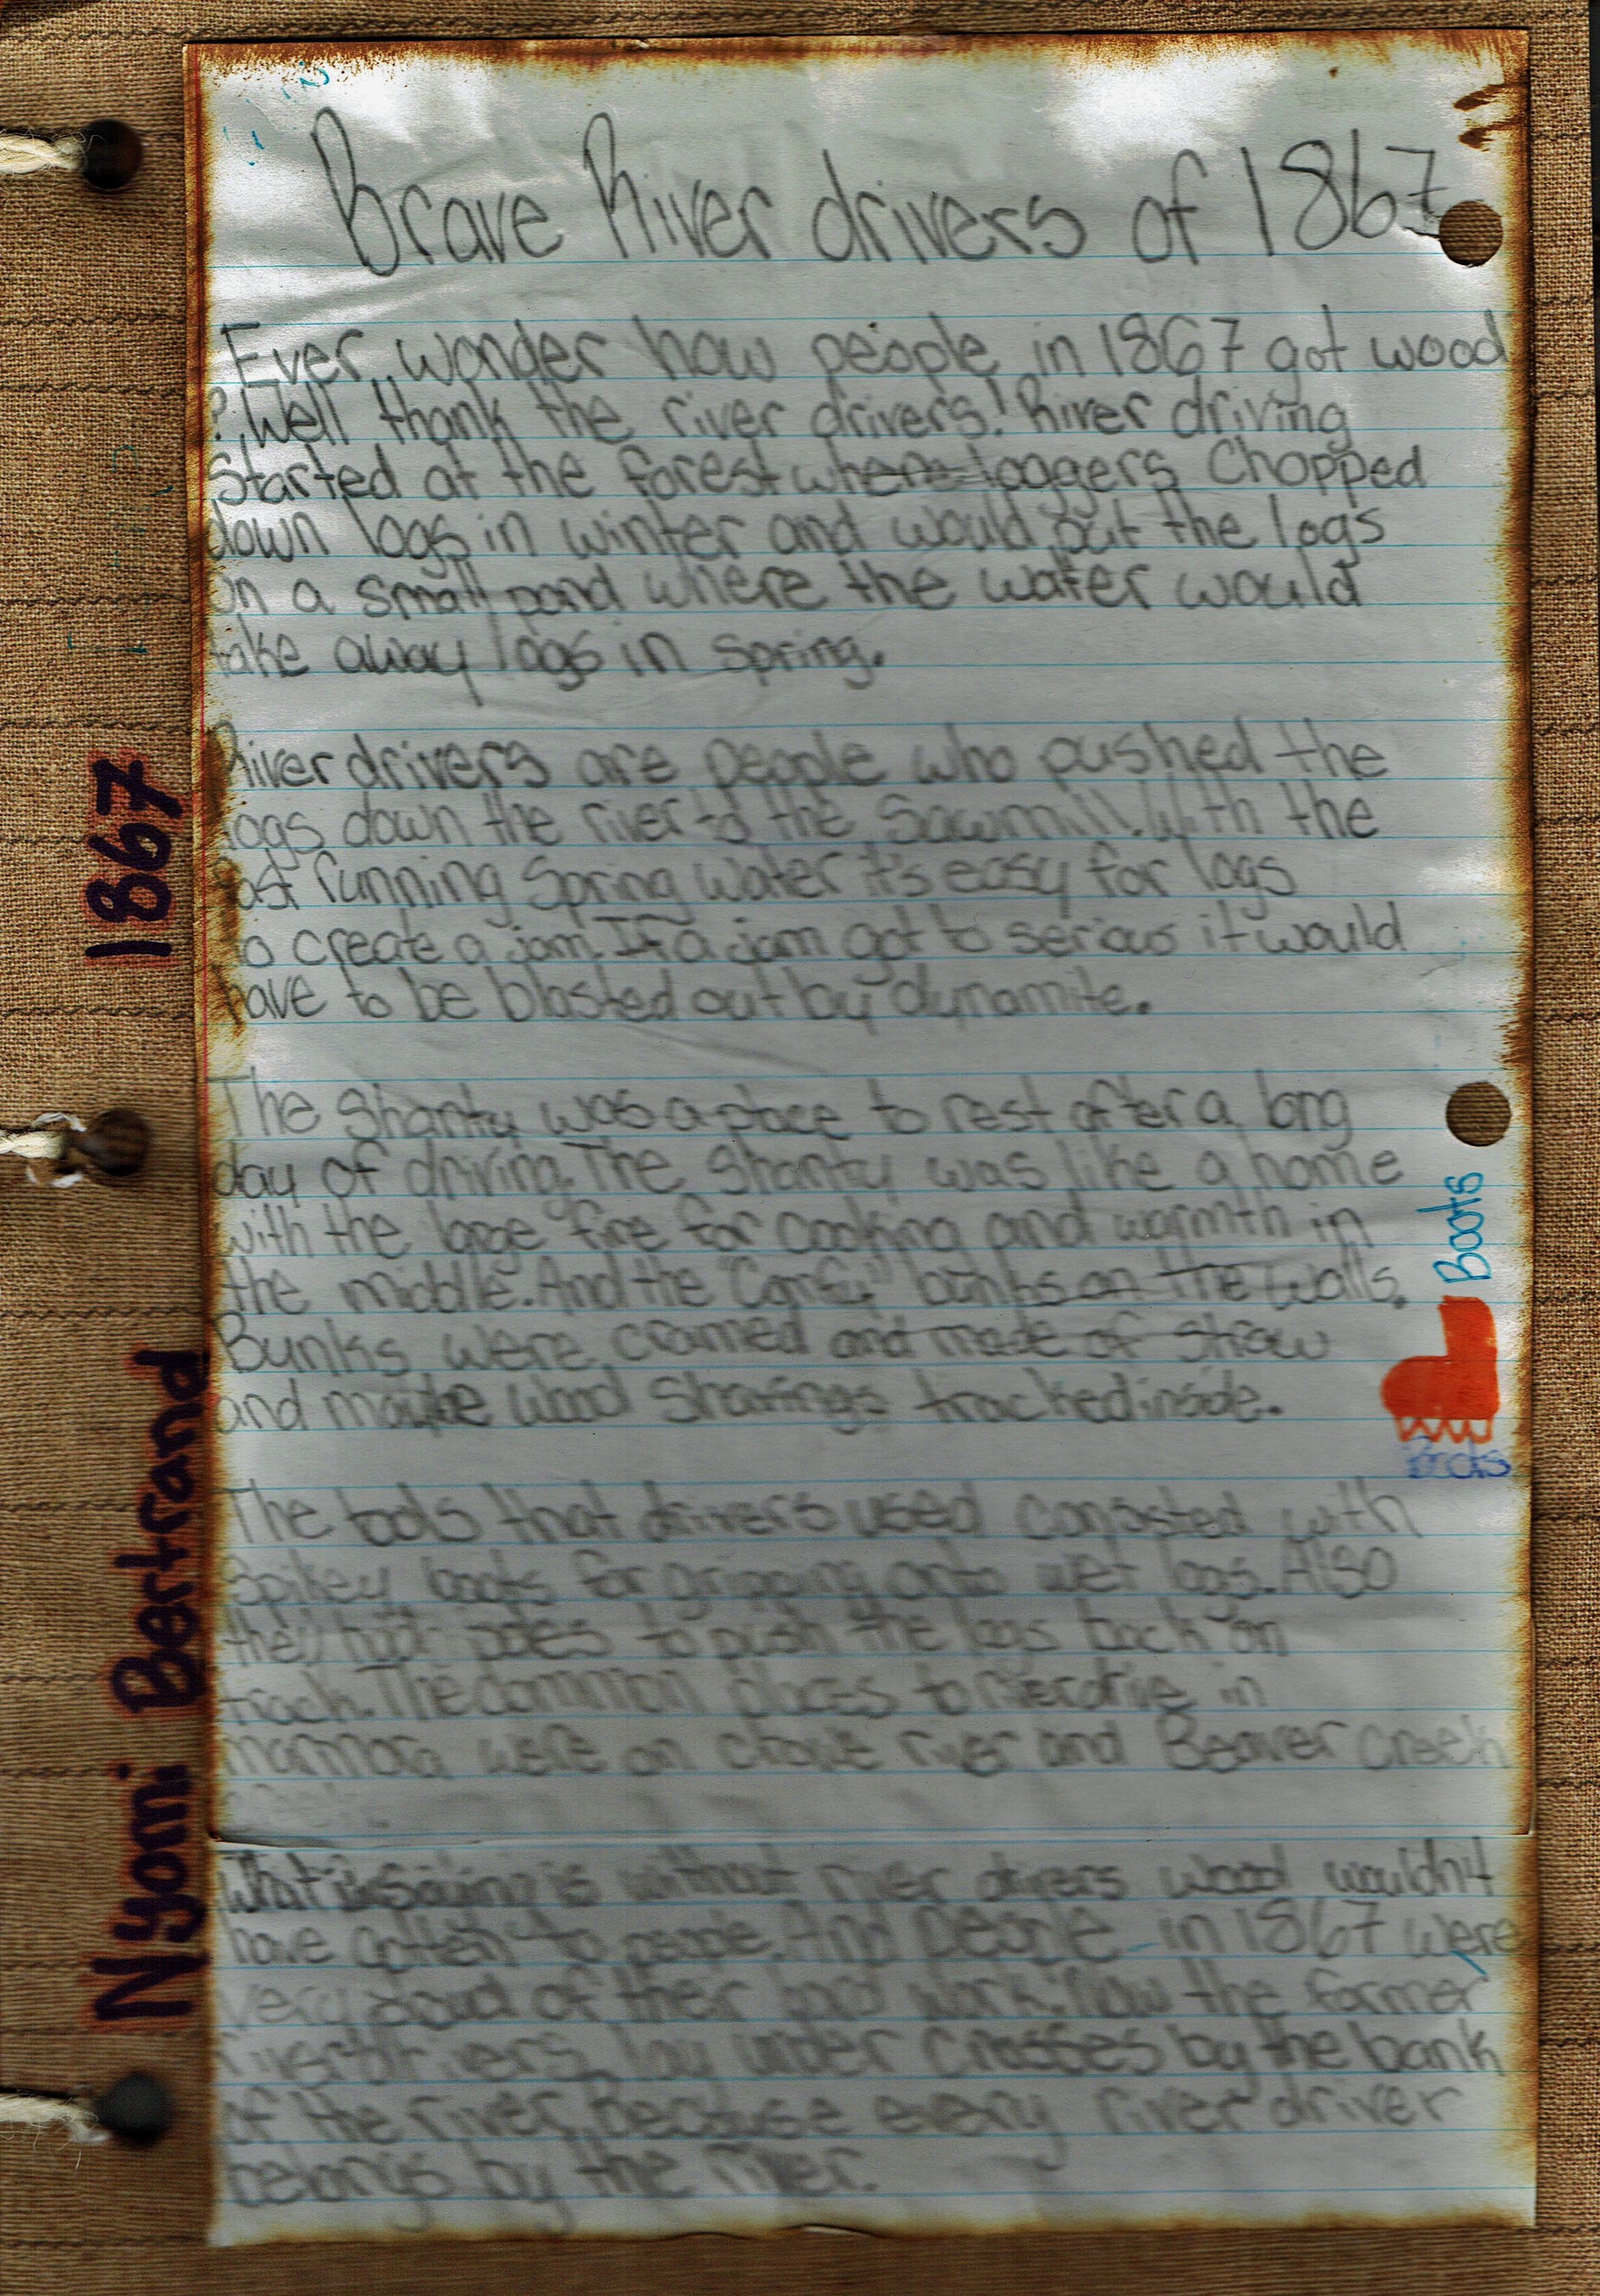 Brave River drivers of 1867
Ever wonder how people in 1867 got wood
? Well thank the river drivers! River driving
Started at the forest where loggers Chopped
down logs in winter and would put the logs
on a small pond where the water would
take away logs in spring.
River drivers are people who pushed the
logs down the river to the Sawmill. With the
fast running Spring water it's easy for logs
to create a jam. If a jam got to serious it would
have to be blasted out by dynamite.
The Shanty was a place to rest after a long
day of driving. The Shanty was like a home
with the large fire for cooking and warmth in
the middle. And the "Comfy" bunks on the walls.
Bunks were cramed and made of straw
and maybe wood Shavings tracked inside.
The tools that drivers used consisted with
Spikey boots for gripping onto wet logs. Also
they had poles to push the logs back on
track. The common places to riverdrive in
marmora were on crowe river and Beaver creek
What is without river drivers wood wouldn't
have gotten to people. And people in 1867 were
very proud of their hard work. Now the former
riverdrivers lay under crosses by the bank
of the river. Because every river driver
belongs by the river.
Boots
Boots
1867
Nyomi Bertrand